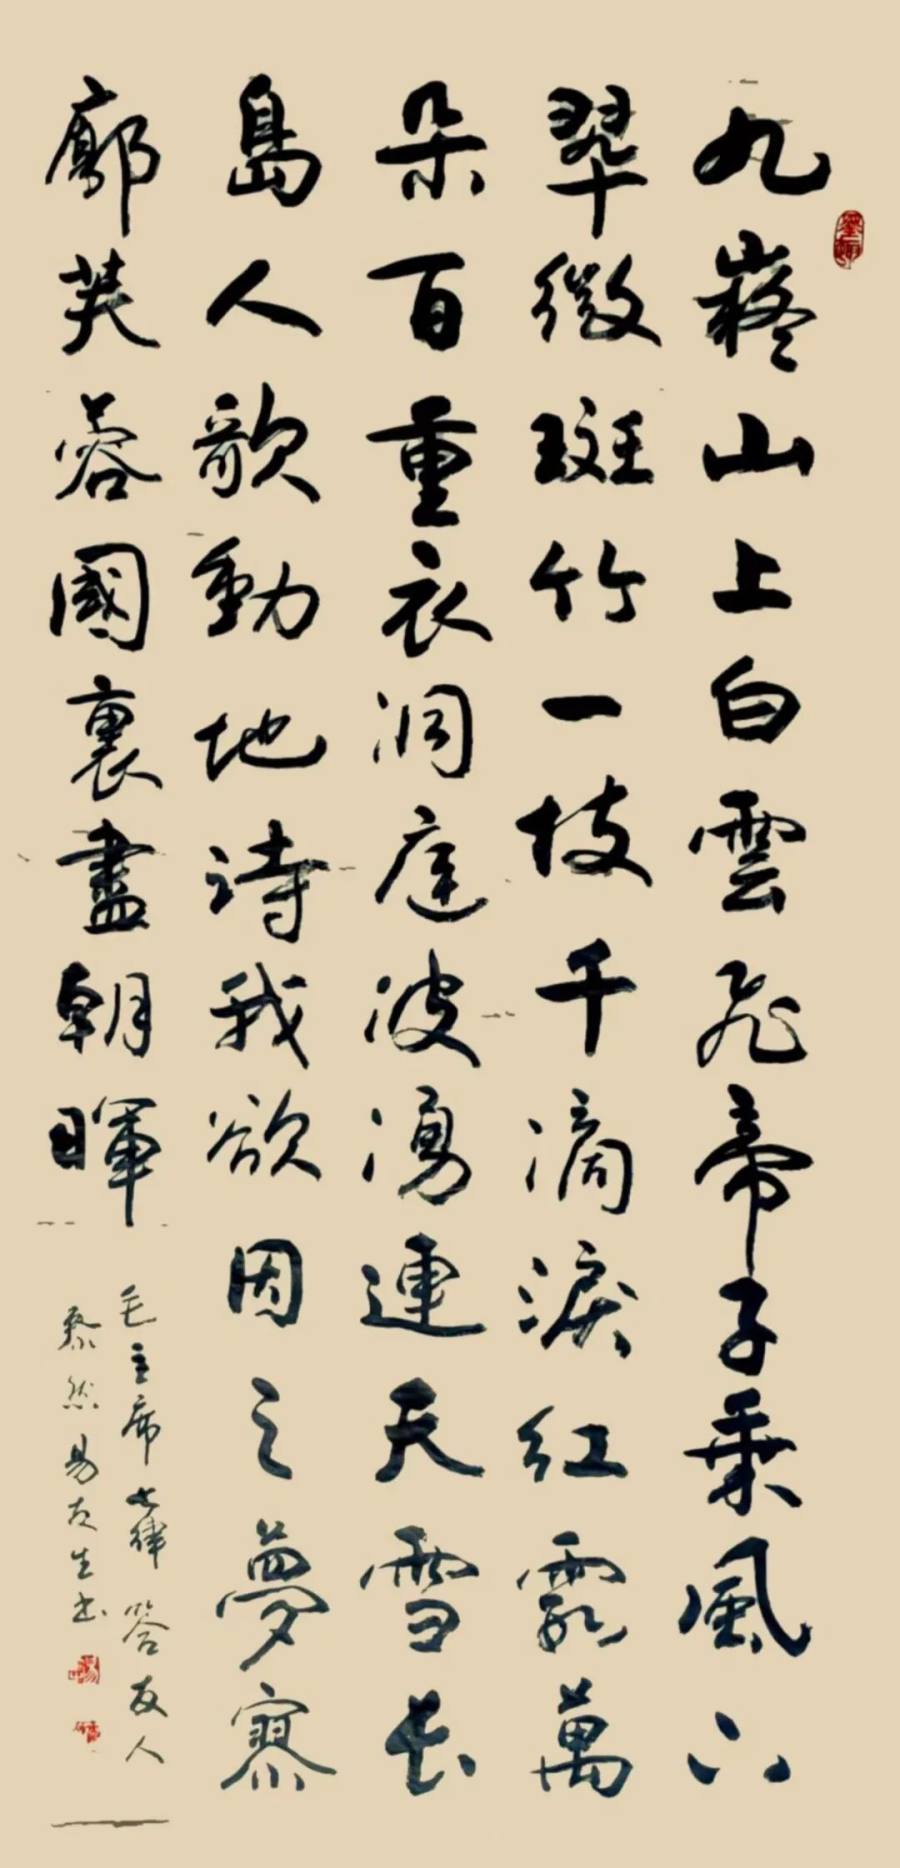 九嶷山上白雲飛帝子乘風下
翠微斑竹一枝千滴淚紅霞萬
朵百重衣洞庭波湧連天雪長
島人歌動地詩我欲因之夢寥
廓芙蓉國裏盡朝暉
毛主席七律答友人
蔡然易友生书